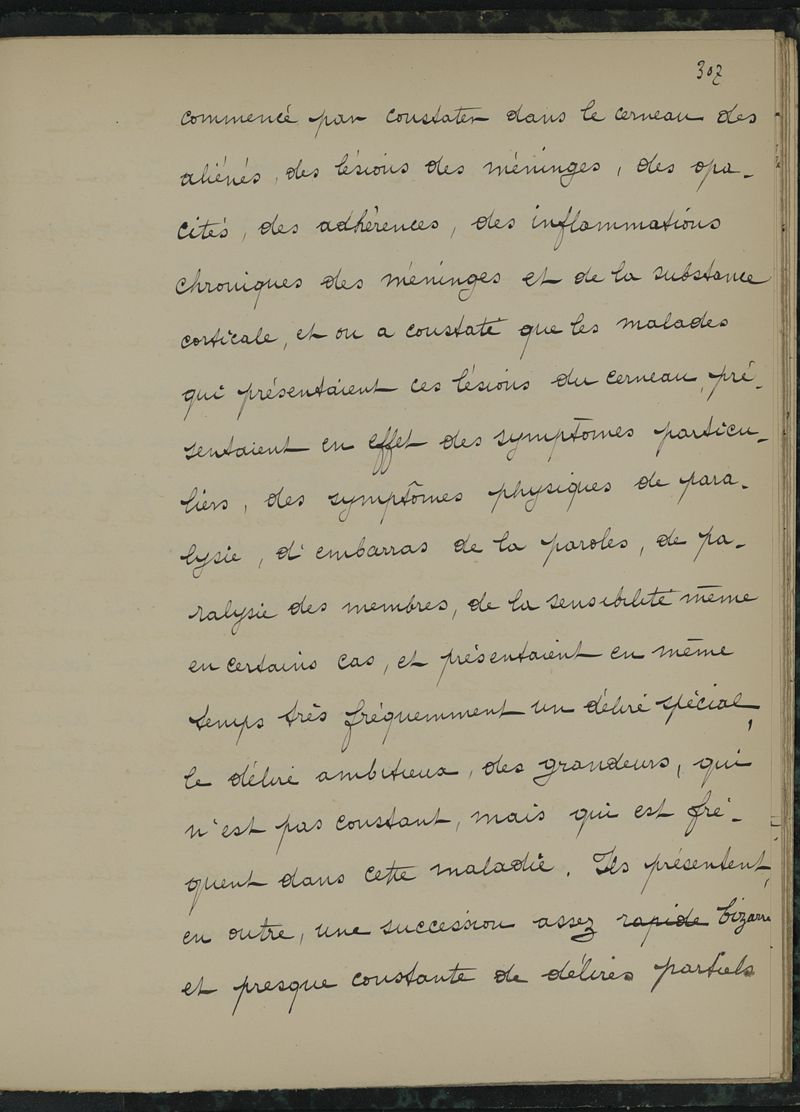 307
commencé par constater dans le cerveau des
aliénés, des lésions des méninges, des opa-
cités, des adhérences, des inflammations
chroniques des méninges et de la substance
corticale, et on a constaté que les malades
qui présentaient ces lésions du cerveau, pré-
sentaient en effet des symptômes particu-
liers, des symptômes physiques de para-
lysie, d'embarras de la paroles, de pa-
ralysie des membres, de la sensibilité même
en certains cas, et présentaient en même
temps très fréquemment un délire spécial,
le délire ambitieux, des grandeurs, qui
n'est pas constant, mais qui est fré-
quent dans cette maladie. Ils présentent,
en outre, une succession assez rapide bizarre
et presque constante de délires partiels